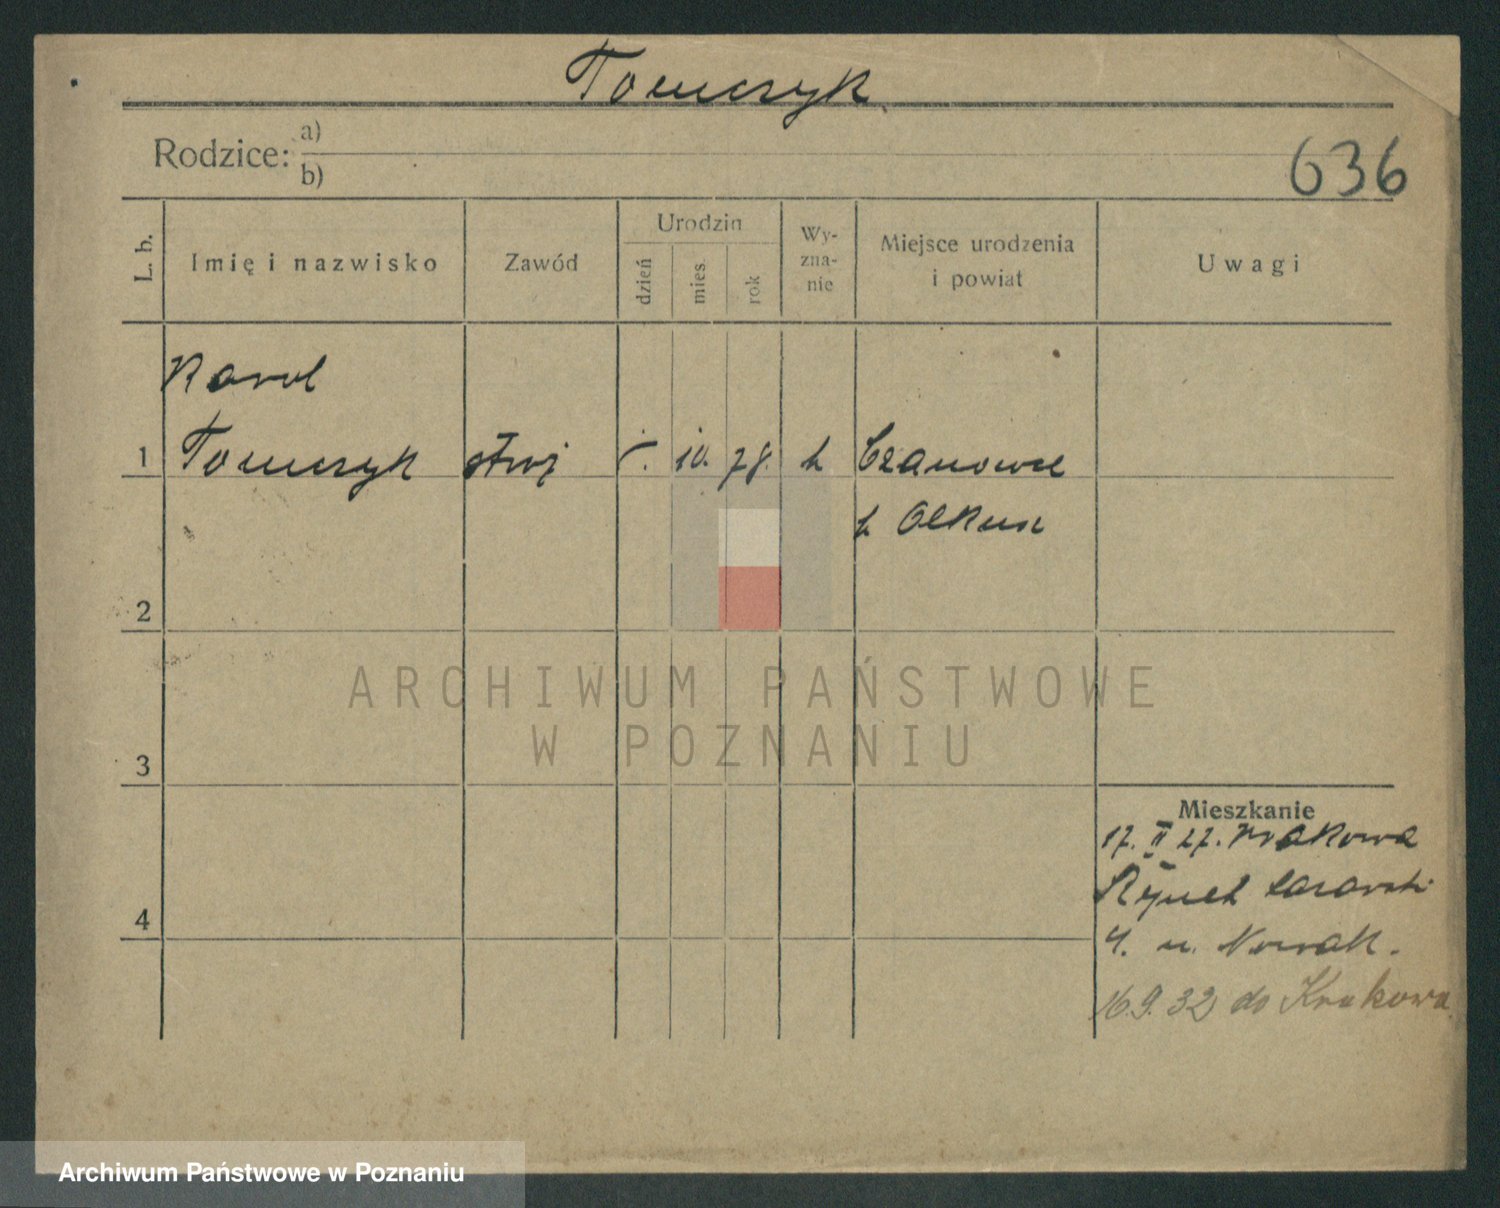 Tomczyk
Rodzice: a)
b)
636
L. b.
Imię i nazwisko
Zawód
Urodzin
dzień
mies.
rok
Wy-
zna-
nie
Miejsce urodzenia
i powiat
Uwagi
Karol
1 Tomczyk 10. 78. k Czanowce
p Olkusz
2
ARCHIWUM PAŃSTWOWE
W POZNANIU
3
Mieszkanie
17. II 27. Krakowa
Rynek Łazarski
4
4. u. Nowak.
16.9.32 do Krakowa
Archiwum Państwowe w Poznaniu